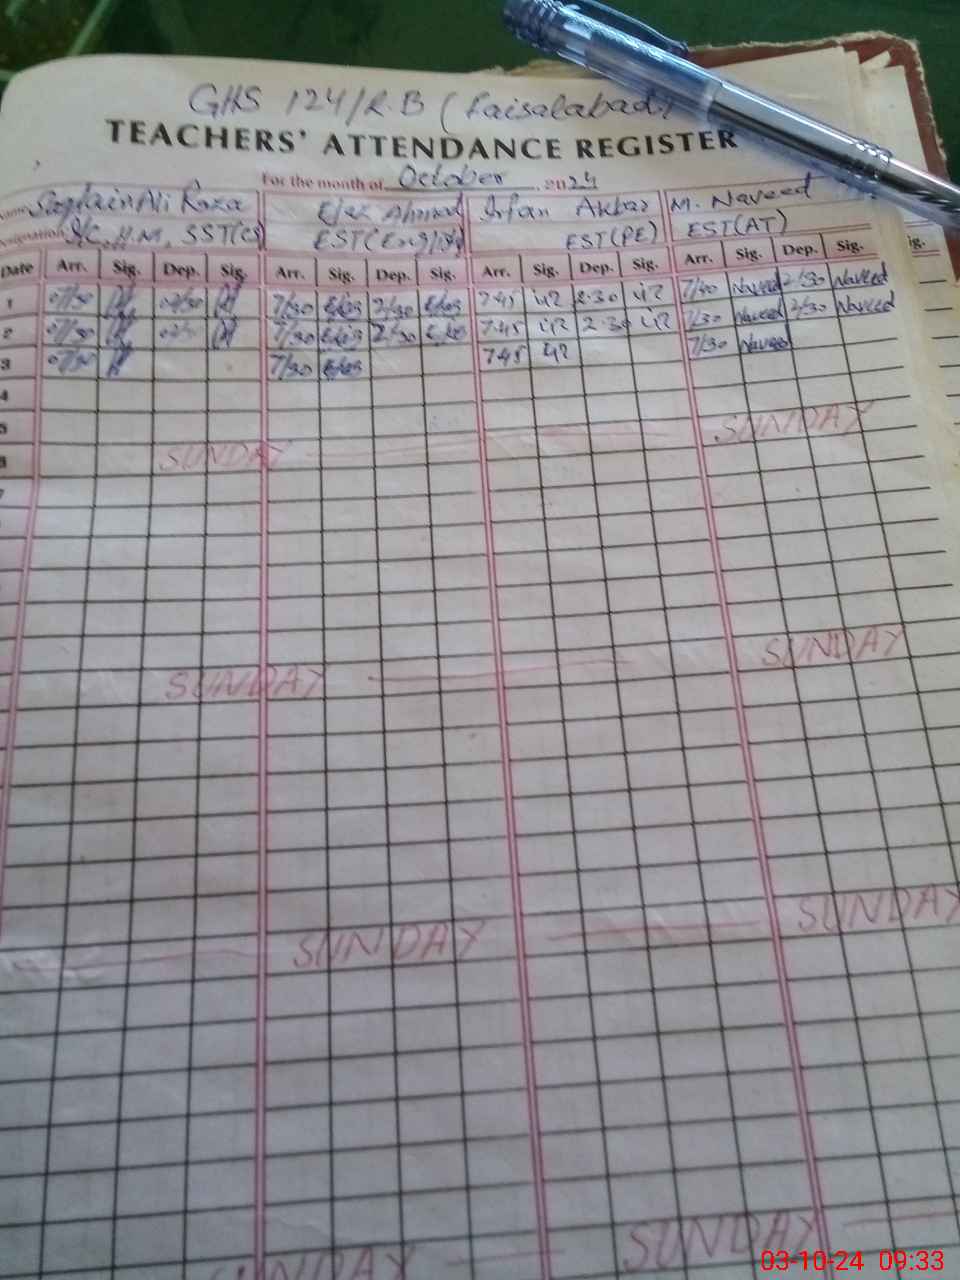 GHS 124/R.B (Faisalabad)
TEACHERS' ATTENDANCE REGISTER
For the month of October, 2024
Name Ali Raza Ejaz Ahmad Irfan Akbar M. Naveed
Designation I/C, H.M, SST(CS) EST(English) EST(PE) EST(AT)
Date Arr. Sig. Dep. Sig. Arr. Sig. Dep. Sig. Arr. Sig. Dep. Sig. Arr. Sig. Dep. Sig. ig.
1 07/30 02/30 7/30 Ejaz 2/30 Ejaz 7.45 2.30 7/40 Naveed 2/30 Naveed
2 07/30 7/30 Ejaz 2/30 Ejaz 7.45 2.30 7/30 Naveed 2/30 Naveed
3 07/30 7/30 Ejaz 7.45 7/30 Naveed
4
5 SUNDAY
6 SUNDAY
7
SUNDAY
SUNDAY
SUNDAY
SUNDAY
SUNDAY
SUNDAY
03-10-24 09:33